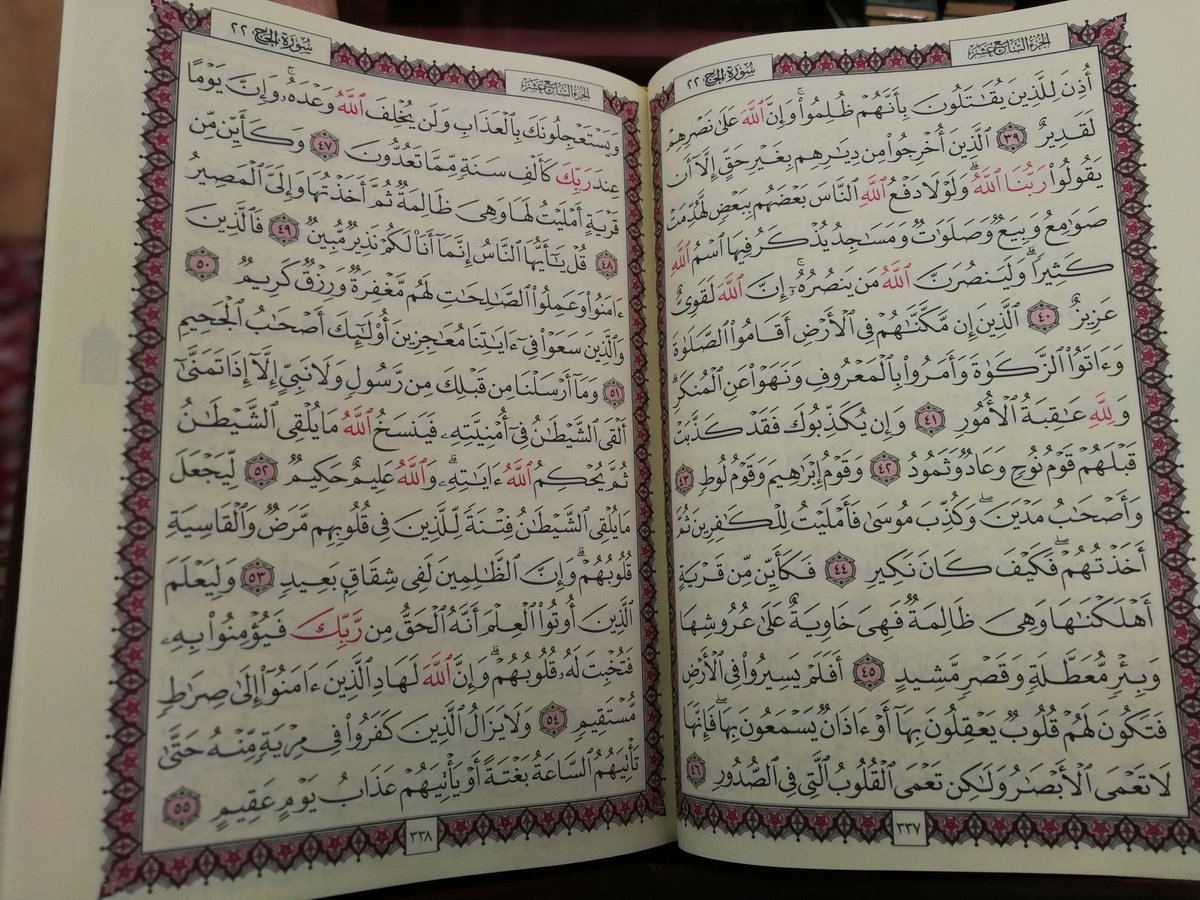 الجزء السابع عشر
سورة الحج ٢٢
أُذِنَ لِلَّذِينَ يُقَٰتَلُونَ بِأَنَّهُمْ ظُلِمُوا۟ ۚ وَإِنَّ ٱللَّهَ عَلَىٰ نَصْرِهِمْ
لَقَدِيرٌ ٣٩ ٱلَّذِينَ أُخْرِجُوا۟ مِن دِيَٰرِهِم بِغَيْرِ حَقٍّ إِلَّآ أَن
يَقُولُوا۟ رَبُّنَا ٱللَّهُ ۗ وَلَوْلَا دَفْعُ ٱللَّهِ ٱلنَّاسَ بَعْضَهُم بِبَعْضٍ لَّهُدِّمَتْ
صَوَٰمِعُ وَبِيَعٌ وَصَلَوَٰتٌ وَمَسَٰجِدُ يُذْكَرُ فِيهَا ٱسْمُ ٱللَّهِ
كَثِيرًا ۗ وَلَيَنصُرَنَّ ٱللَّهُ مَن يَنصُرُهُۥٓ ۗ إِنَّ ٱللَّهَ لَقَوِىٌّ
عَزِيزٌ ٤٠ ٱلَّذِينَ إِن مَّكَّنَّٰهُمْ فِى ٱلْأَرْضِ أَقَامُوا۟ ٱلصَّلَوٰةَ
وَءَاتَوُا۟ ٱلزَّكَوٰةَ وَأَمَرُوا۟ بِٱلْمَعْرُوفِ وَنَهَوْا۟ عَنِ ٱلْمُنكَرِ ۗ
وَلِلَّهِ عَٰقِبَةُ ٱلْأُمُورِ ٤١ وَإِن يُكَذِّبُوكَ فَقَدْ كَذَّبَتْ
قَبْلَهُمْ قَوْمُ نُوحٍ وَعَادٌ وَثَمُودُ ٤٢ وَقَوْمُ إِبْرَٰهِيمَ وَقَوْمُ لُوطٍ ٤٣
وَأَصْحَٰبُ مَدْيَنَ ۖ وَكُذِّبَ مُوسَىٰ فَأَمْلَيْتُ لِلْكَٰفِرِينَ ثُمَّ
أَخَذْتُهُمْ ۖ فَكَيْفَ كَانَ نَكِيرِ ٤٤ فَكَأَيِّن مِّن قَرْيَةٍ
أَهْلَكْنَٰهَا وَهِىَ ظَالِمَةٌ فَهِىَ خَاوِيَةٌ عَلَىٰ عُرُوشِهَا
وَبِئْرٍ مُّعَطَّلَةٍ وَقَصْرٍ مَّشِيدٍ ٤٥ أَفَلَمْ يَسِيرُوا۟ فِى ٱلْأَرْضِ
فَتَكُونَ لَهُمْ قُلُوبٌ يَعْقِلُونَ بِهَآ أَوْ ءَاذَانٌ يَسْمَعُونَ بِهَا ۖ فَإِنَّهَا
لَا تَعْمَى ٱلْأَبْصَٰرُ وَلَٰكِن تَعْمَى ٱلْقُلُوبُ ٱلَّتِى فِى ٱلصُّدُورِ ٤٦
٣٣٧
الجزء السابع عشر
سورة الحج ٢٢
وَيَسْتَعْجِلُونَكَ بِٱلْعَذَابِ وَلَن يُخْلِفَ ٱللَّهُ وَعْدَهُۥ ۚ وَإِنَّ يَوْمًا
عِندَ رَبِّكَ كَأَلْفِ سَنَةٍ مِّمَّا تَعُدُّونَ ٤٧ وَكَأَيِّن مِّن
قَرْيَةٍ أَمْلَيْتُ لَهَا وَهِىَ ظَالِمَةٌ ثُمَّ أَخَذْتُهَا وَإِلَىَّ ٱلْمَصِيرُ
٤٨ قُلْ يَٰٓأَيُّهَا ٱلنَّاسُ إِنَّمَآ أَنَا۠ لَكُمْ نَذِيرٌ مُّبِينٌ ٤٩ فَٱلَّذِينَ
ءَامَنُوا۟ وَعَمِلُوا۟ ٱلصَّٰلِحَٰتِ لَهُم مَّغْفِرَةٌ وَرِزْقٌ كَرِيمٌ ٥٠
وَٱلَّذِينَ سَعَوْا۟ فِىٓ ءَايَٰتِنَا مُعَٰجِزِينَ أُو۟لَٰٓئِكَ أَصْحَٰبُ ٱلْجَحِيمِ
٥١ وَمَآ أَرْسَلْنَا مِن قَبْلِكَ مِن رَّسُولٍ وَلَا نَبِىٍّ إِلَّآ إِذَا تَمَنَّىٰٓ
أَلْقَى ٱلشَّيْطَٰنُ فِىٓ أُمْنِيَّتِهِۦ فَيَنسَخُ ٱللَّهُ مَا يُلْقِى ٱلشَّيْطَٰنُ
ثُمَّ يُحْكِمُ ٱللَّهُ ءَايَٰتِهِۦ ۗ وَٱللَّهُ عَلِيمٌ حَكِيمٌ ٥٢ لِّيَجْعَلَ
مَا يُلْقِى ٱلشَّيْطَٰنُ فِتْنَةً لِّلَّذِينَ فِى قُلُوبِهِم مَّرَضٌ وَٱلْقَاسِيَةِ
قُلُوبُهُمْ ۗ وَإِنَّ ٱلظَّٰلِمِينَ لَفِى شِقَاقٍۭ بَعِيدٍ ٥٣ وَلِيَعْلَمَ
ٱلَّذِينَ أُوتُوا۟ ٱلْعِلْمَ أَنَّهُ ٱلْحَقُّ مِن رَّبِّكَ فَيُؤْمِنُوا۟ بِهِۦ
فَتُخْبِتَ لَهُۥ قُلُوبُهُمْ ۗ وَإِنَّ ٱللَّهَ لَهَادِ ٱلَّذِينَ ءَامَنُوٓا۟ إِلَىٰ صِرَٰطٍ
مُّسْتَقِيمٍ ٥٤ وَلَا يَزَالُ ٱلَّذِينَ كَفَرُوا۟ فِى مِرْيَةٍ مِّنْهُ حَتَّىٰ
تَأْتِيَهُمُ ٱلسَّاعَةُ بَغْتَةً أَوْ يَأْتِيَهُمْ عَذَابُ يَوْمٍ عَقِيمٍ ٥٥
٣٣٨